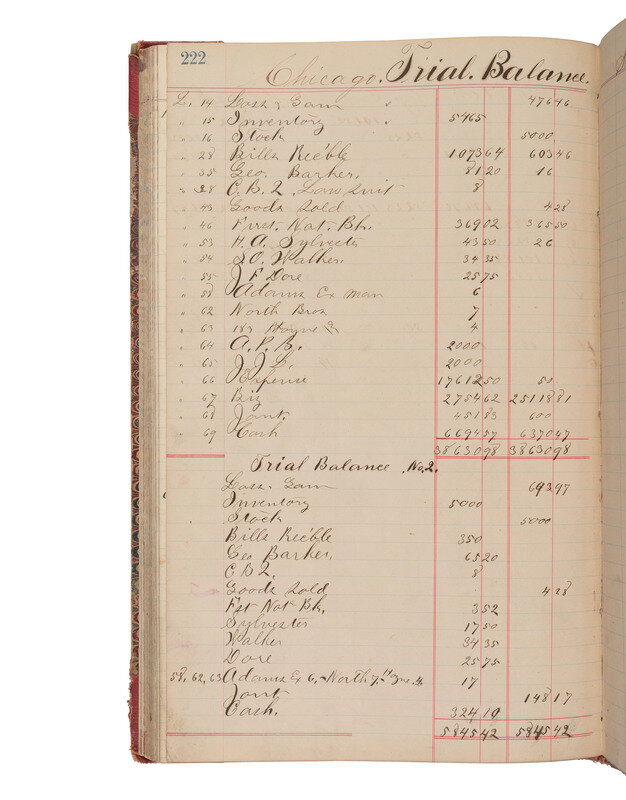 222
Chicago. Trial. Balance.
L. 14 Loss & Gain 476 46
" 15 Inventory 5465
" 16 Stock 5000
" 28 Bills Rec'ble 1073 64 603 46
" 35 Geo Barker. 81 20 16
" 38 C. B. Q. Law Suit 8
" 43 Goods Sold 4 28
" 46 First. Nat. Bk. 369 02 365 50
" 53 H. A. Sylvester 43 50 26
" 54 S. O. Walker. 34 35
" 55 J F Dore 25 75
" 58 Adams Ex man 6
" 62 North Bros 7
" 63 183 4
" 64 A. P. B. 2000
" 65 2000
" 66 Expense 17612 50 50
" 67 Biz 2754 62 25118 81
" 68 Joint. 451 83 600
" 69 Cash 6694 57 6370 47
38630 98 38630 98
Trial Balance No. 2.
Loss. Gain 693 97
Inventory 5000
Stock 5000
Bills Rec'ble 350
Geo Barker. 65 20
C B Q. 8
Goods Sold 4 28
Fst Nat Bk. 3 52
Sylvester 17 50
Walker 34 35
Dore 25 75
58, 62, 63 Adams Ex 6, North 7, 4. 17
Joint 148 17
Cash. 324 10
5845 42 5845 42